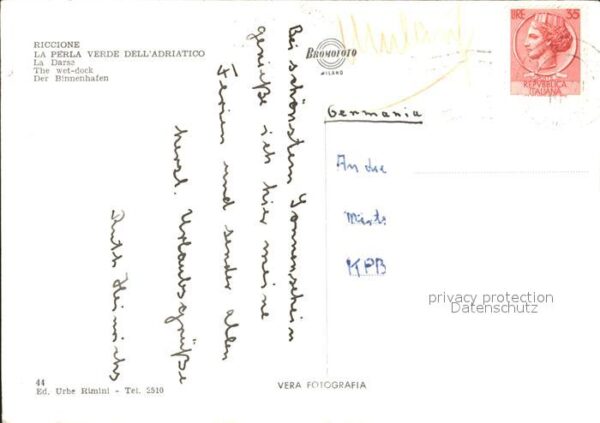 RICCIONE
LA PERLA VERDE DELL'ADRIATICO
La Darsa
The wet-dock
Der Binnenhafen
BROMOFOTO
MILANO
LIRE 35
REPVBBLICA
ITALIANA
Germania
Bei schönstem Sonnenschein
genieße ich hier meine
Ferien und sender allen
herzl. Urlaubsgrüße
Ruth Heinrichs
Andre
KPB
privacy protection
Datenschutz
44
Ed. Urbe Rimini - Tel. 2510
VERA FOTOGRAFIA